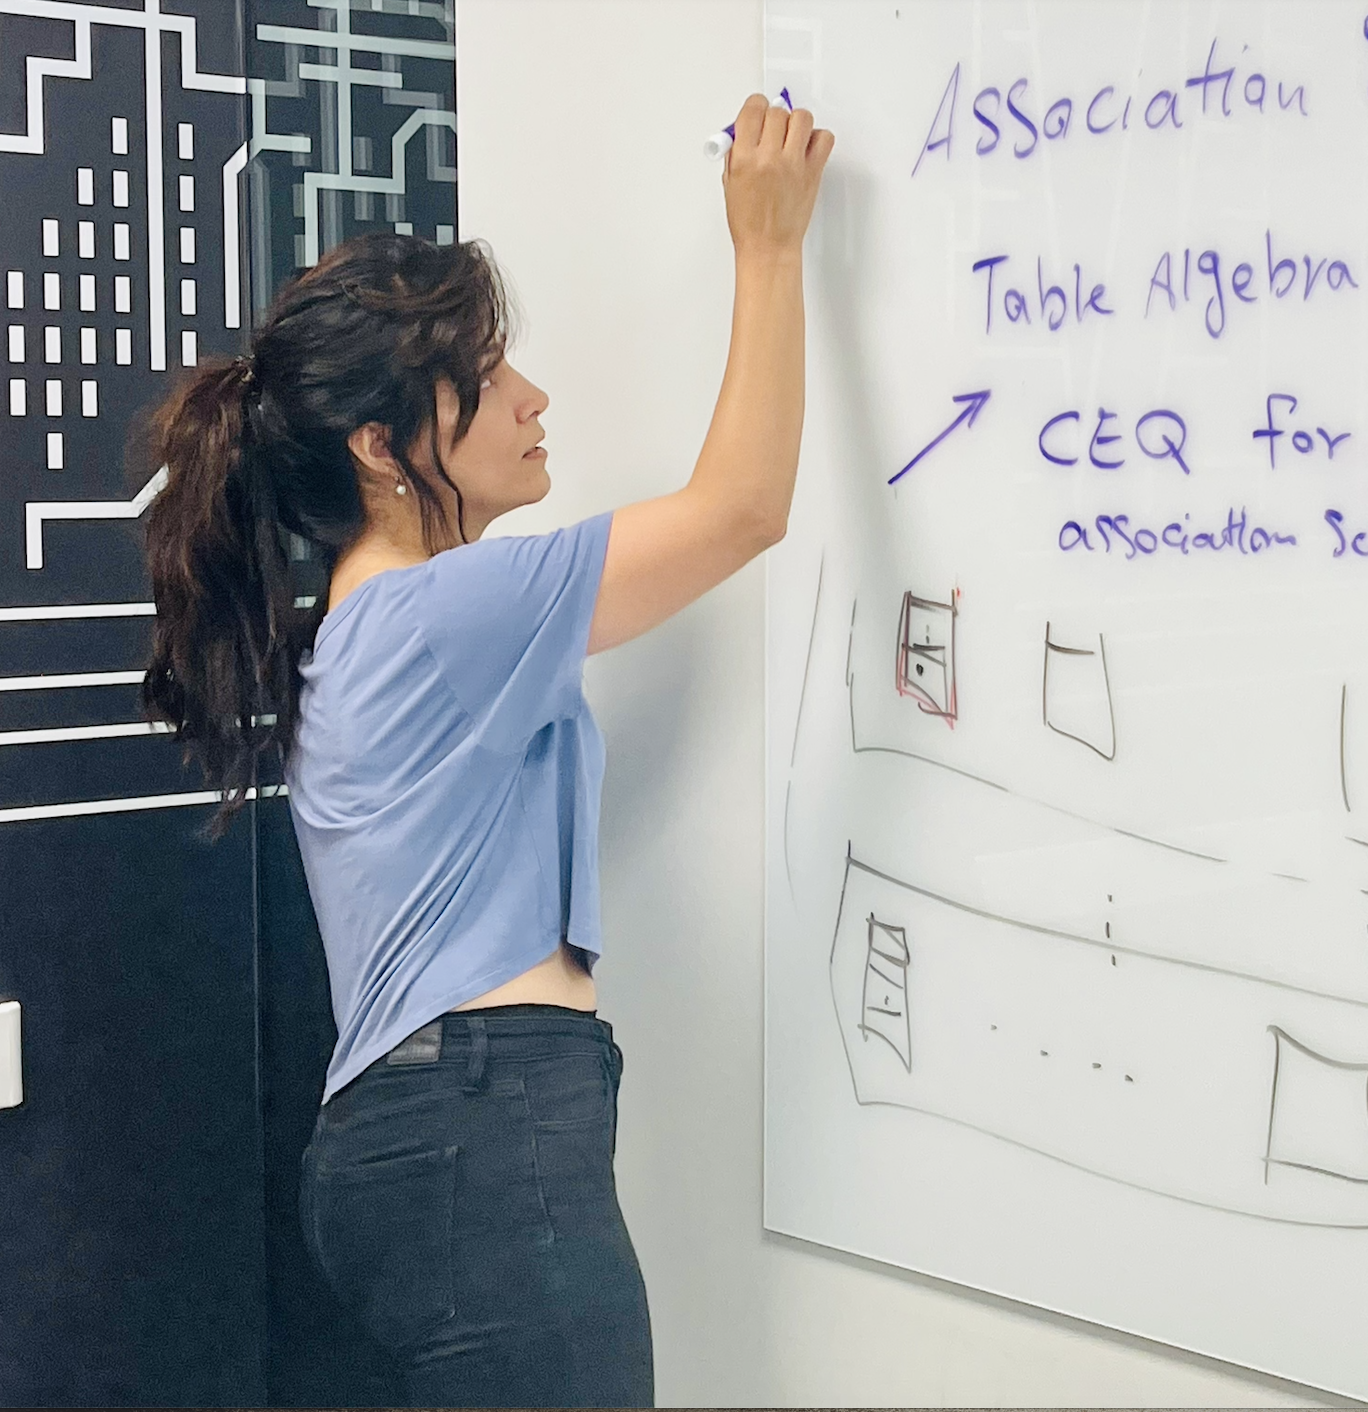 Association
Table Algebra
CEQ for
association Sc